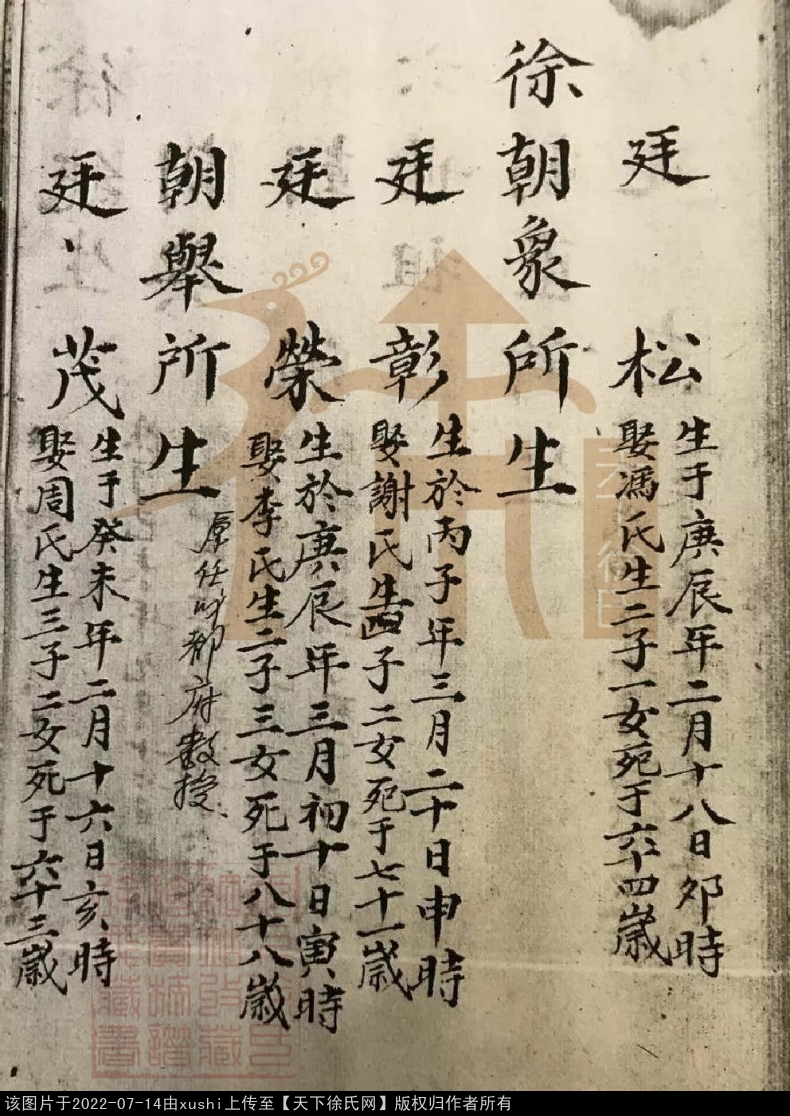 廷松
生于庚辰年二月十八日夘時
娶馮氏生二子一女死于六十四歲
徐朝象所生
廷彰
生於丙子年三月二十日申時
娶謝氏生四子二女死于七十一歲
廷榮
生於庚辰年三月初十日寅時
娶李氏生二子三女死于八十八歲
朝舉所生
原任成都府教授
廷茂
生于癸未年二月十六日亥時
娶周氏生三子二女死于六十三歲
该图片于2022-07-14由xushi上传至【天下徐氏网】版权归作者所有